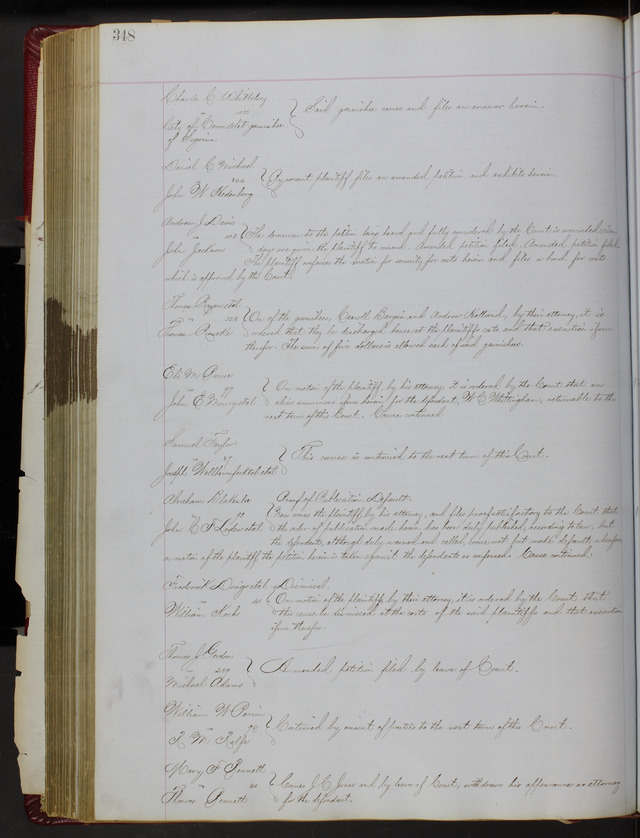 348
Charles C Whittlesey
vs
City of Carondelet garnishee
of
} Said garnishee comes and files an answer herein.
Daniel C Michael
vs
John W
} By consent plaintiff files an amended petition and exhibits herein.
Andrew J Davis
vs
John Jackson
} The demurrer to the petition being heard and fully considered by the Court is overruled.
days are given the plaintiff to amend. Amended petition filed. Amended petition filed.
The plaintiff confesses the motion for security for costs herein and files a bond for costs
which is approved by the Court.
Thomas
vs
Thomas
} On of the garnishees, Carroll and Andrew Holland, by their attorney, it is
ordered that they be discharged hence at the plaintiffs costs and that execution issue
therefor. The sum of five dollars is allowed each of said garnishees.
Eli M
vs 27
John E et al
} On motion of the plaintiff by his attorney it is ordered by the Court that an
alias summons issue herein for the defendant, W C returnable to the
next term of this Court. Cause continued
Samuel Taylor
vs 37
Joseph et al
} This cause is continued to the next term of this Court.
Abraham Blakesley
vs
John C F et al
Proof of Publication. Default.
} Now comes the plaintiff by his attorney, and files proof satisfactory to the Court that
the order of publication made herein has been duly published, according to law, but
the defendants, although duly warned and called, come not but make default; wherefore
on motion of the plaintiff the petition herein is taken against the defendants as confessed. Cause continued.
Frederick et al
vs
William
Dismissed.
} On motion of the plaintiffs by their attorney, it is ordered by the Court that
this cause be dismissed at the costs of the said plaintiffs and that execution
issue therefor.
Thomas J
vs 259
Michael Adams
} Amended petition filed by leave of Court.
William W
vs
R M Rolfe
} Continued by consent of parties to the next term of this Court.
Mary F Bennett
vs
Thomas Bennett
} Comes J C Jones and by leave of Court, withdraws his appearance as attorney
for the defendant.